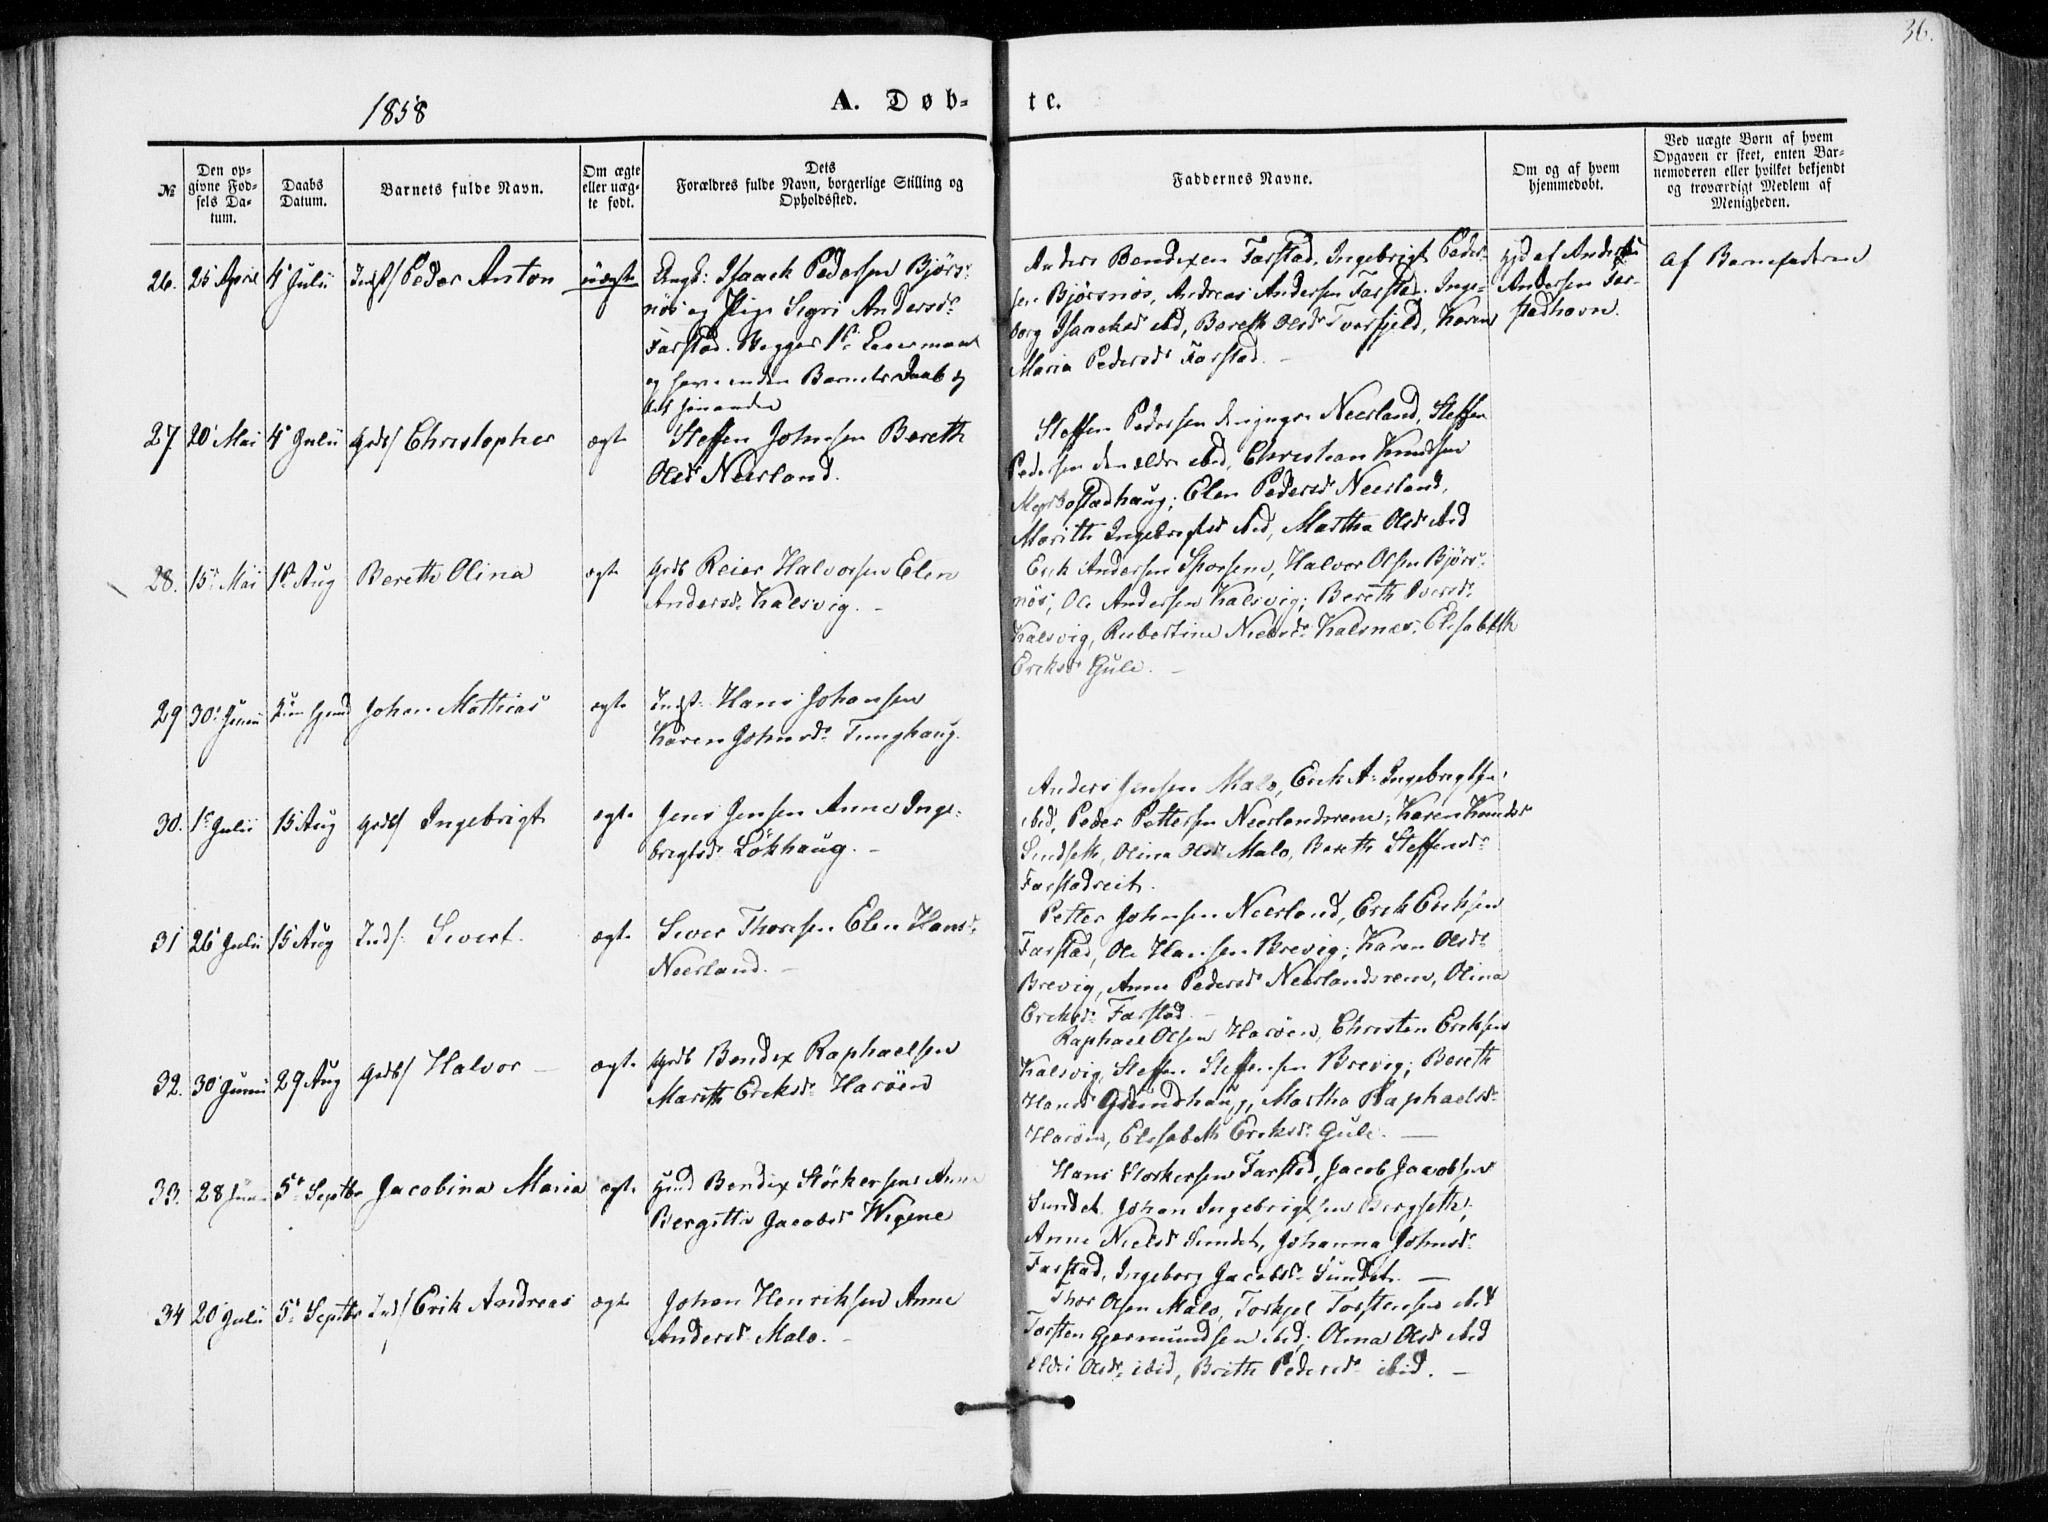 36.
1858
A. Døb-
te.
№
Den op-
givne Fød-
sels Da-
tum.
Daabs
Datum.
Barnets fulde Navn.
Om ægte
eller uæg-
te født.
Dets
Forældres fulde Navn, borgerlige Stilling og
Opholdssted.
Faddernes Navne.
Om og af hvem
hjemmedøbt.
Ved uægte Børn af hvem
Opgaven er skeet, enten Bar-
nemoderen eller hvilket bekjendt
og troværdigt Medlem af
Menigheden.
26. 25 April 4 Julii Indst/ Peder Anton uægte Ungk: Isaach Pedersen Bjørs-
nøs og Pige Sigri Andersd:
Farstad. Begges 1ste Leiermaal
og har inden Barnets Daab
Anders Bendixen Farstad, Ingebrigt Peder-
sen Bjørsnøs, Andreas Andersen Farstad. Inge-
borg Isaacksd ibd, Bereth Olsd Tverfjeld, Karen
Maria Pedersd Farstad. -
hjd af Anders
Andersen Far-
stadhavn.
af Barnefaderen
27. 20 Mai 4 Julii Grdb/ Christopher ægte Steffen Johnsen Bereth
Olsd Neerland.
Steffen Pedersen den yngre Neerland, Steffen
Pedersen den ældre ibid, Christian Knudsen
Elen Pedersd Neerland,
Marith Ingebrigtsd ibid, Martha Olsd ibid
28. 15 Mai 1 Aug Bereth Olina ægte Grdb Reier Halvorsen Elen
Andersd: Kalsvig. -
Erik Andersen Halvor Olsen Bjørs-
nøs, Ole Andersen Kalsvig; Bereth Iversd:
Kalsvig, Rubertine Nielsd: Kalsnes, Elisabeth
Eriksd Gule. -
29 30 Junii Johan Mathias ægte Indst: Hans Johansen
Karen Johnsd: Tunghaug.
30. 1 Julii 15 Aug Grdb/ Ingebrigt ægte Jens Jensen Anne Inge-
brigtsd: Løkhaug. -
Anders Jensen Malo, Erik A: Ingebrigtsen
ibid, Peder Pettersen Neerlandsrem; Karen Knudsd
Sindseth, Olina Olsd Malo, Bereth Steffensd:
Farstadreit.
31 26 Julii 15 Aug Inds: Sivert. ægte Siver Thoresen Elen Hansd:
Neerland. -
Petter Johnsen Neerland, Erik Eriksen
Farstad, Ole Hansen Brevig; Karen Olsd:
Brevig, Anne Pedersd Neerlandsrem, Olina
Eriksd: Farstad. -
32. 30 Junii 29 Aug Grdb/ Halvor - ægte Grdb Bendix Raphaelsen
Marith Eriksd: Harøen
Raphael Olsen Harøen, Christen Eriksen
Kalsvig, Steffen Steffensen Brevig; Bereth
Hansd Grundhaug, Martha Raphaelsd:
Harøen, Elisabeth Eriksd: Gule. -
33. 28 Junii 5 Septbr Jacobina Maria ægte Hmd Bendix Størkersen Anne
Bergitte Jacobsd Wigene
Hans Storkersen Farstad, Jacob Jacobsen
Sundet. Johan Ingebrigtsen Bergseth;
Anne Nielsd Sundet, Johanna Johnsd:
Farstad, Ingeborg Jacobsd: Sundet. -
34 20 Julii 5 Septbr Ind/ Erik Andreas ægte Johan Henriksen Anne
Andersd. Malo. -
Thor Olsen Malo, Torkjel Torstensen ibid
Torsten Gjermundsen ibid; Olina Olsd ibid
Eldri Olsd: ibid, Brith Pedersd: ibid. -